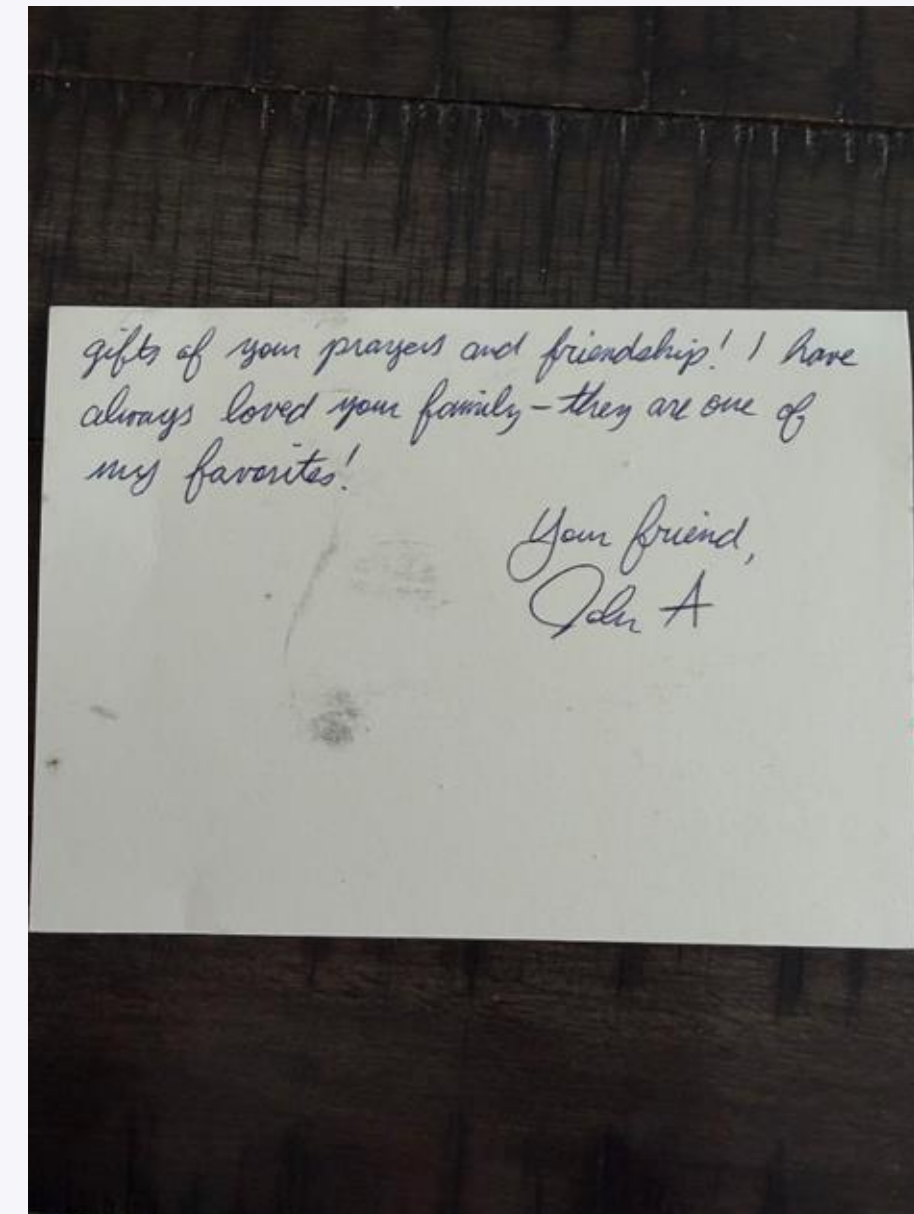 gifts of your prayers and friendship! I have
always loved your family – they are one of
my favorites!
Your friend,
John A